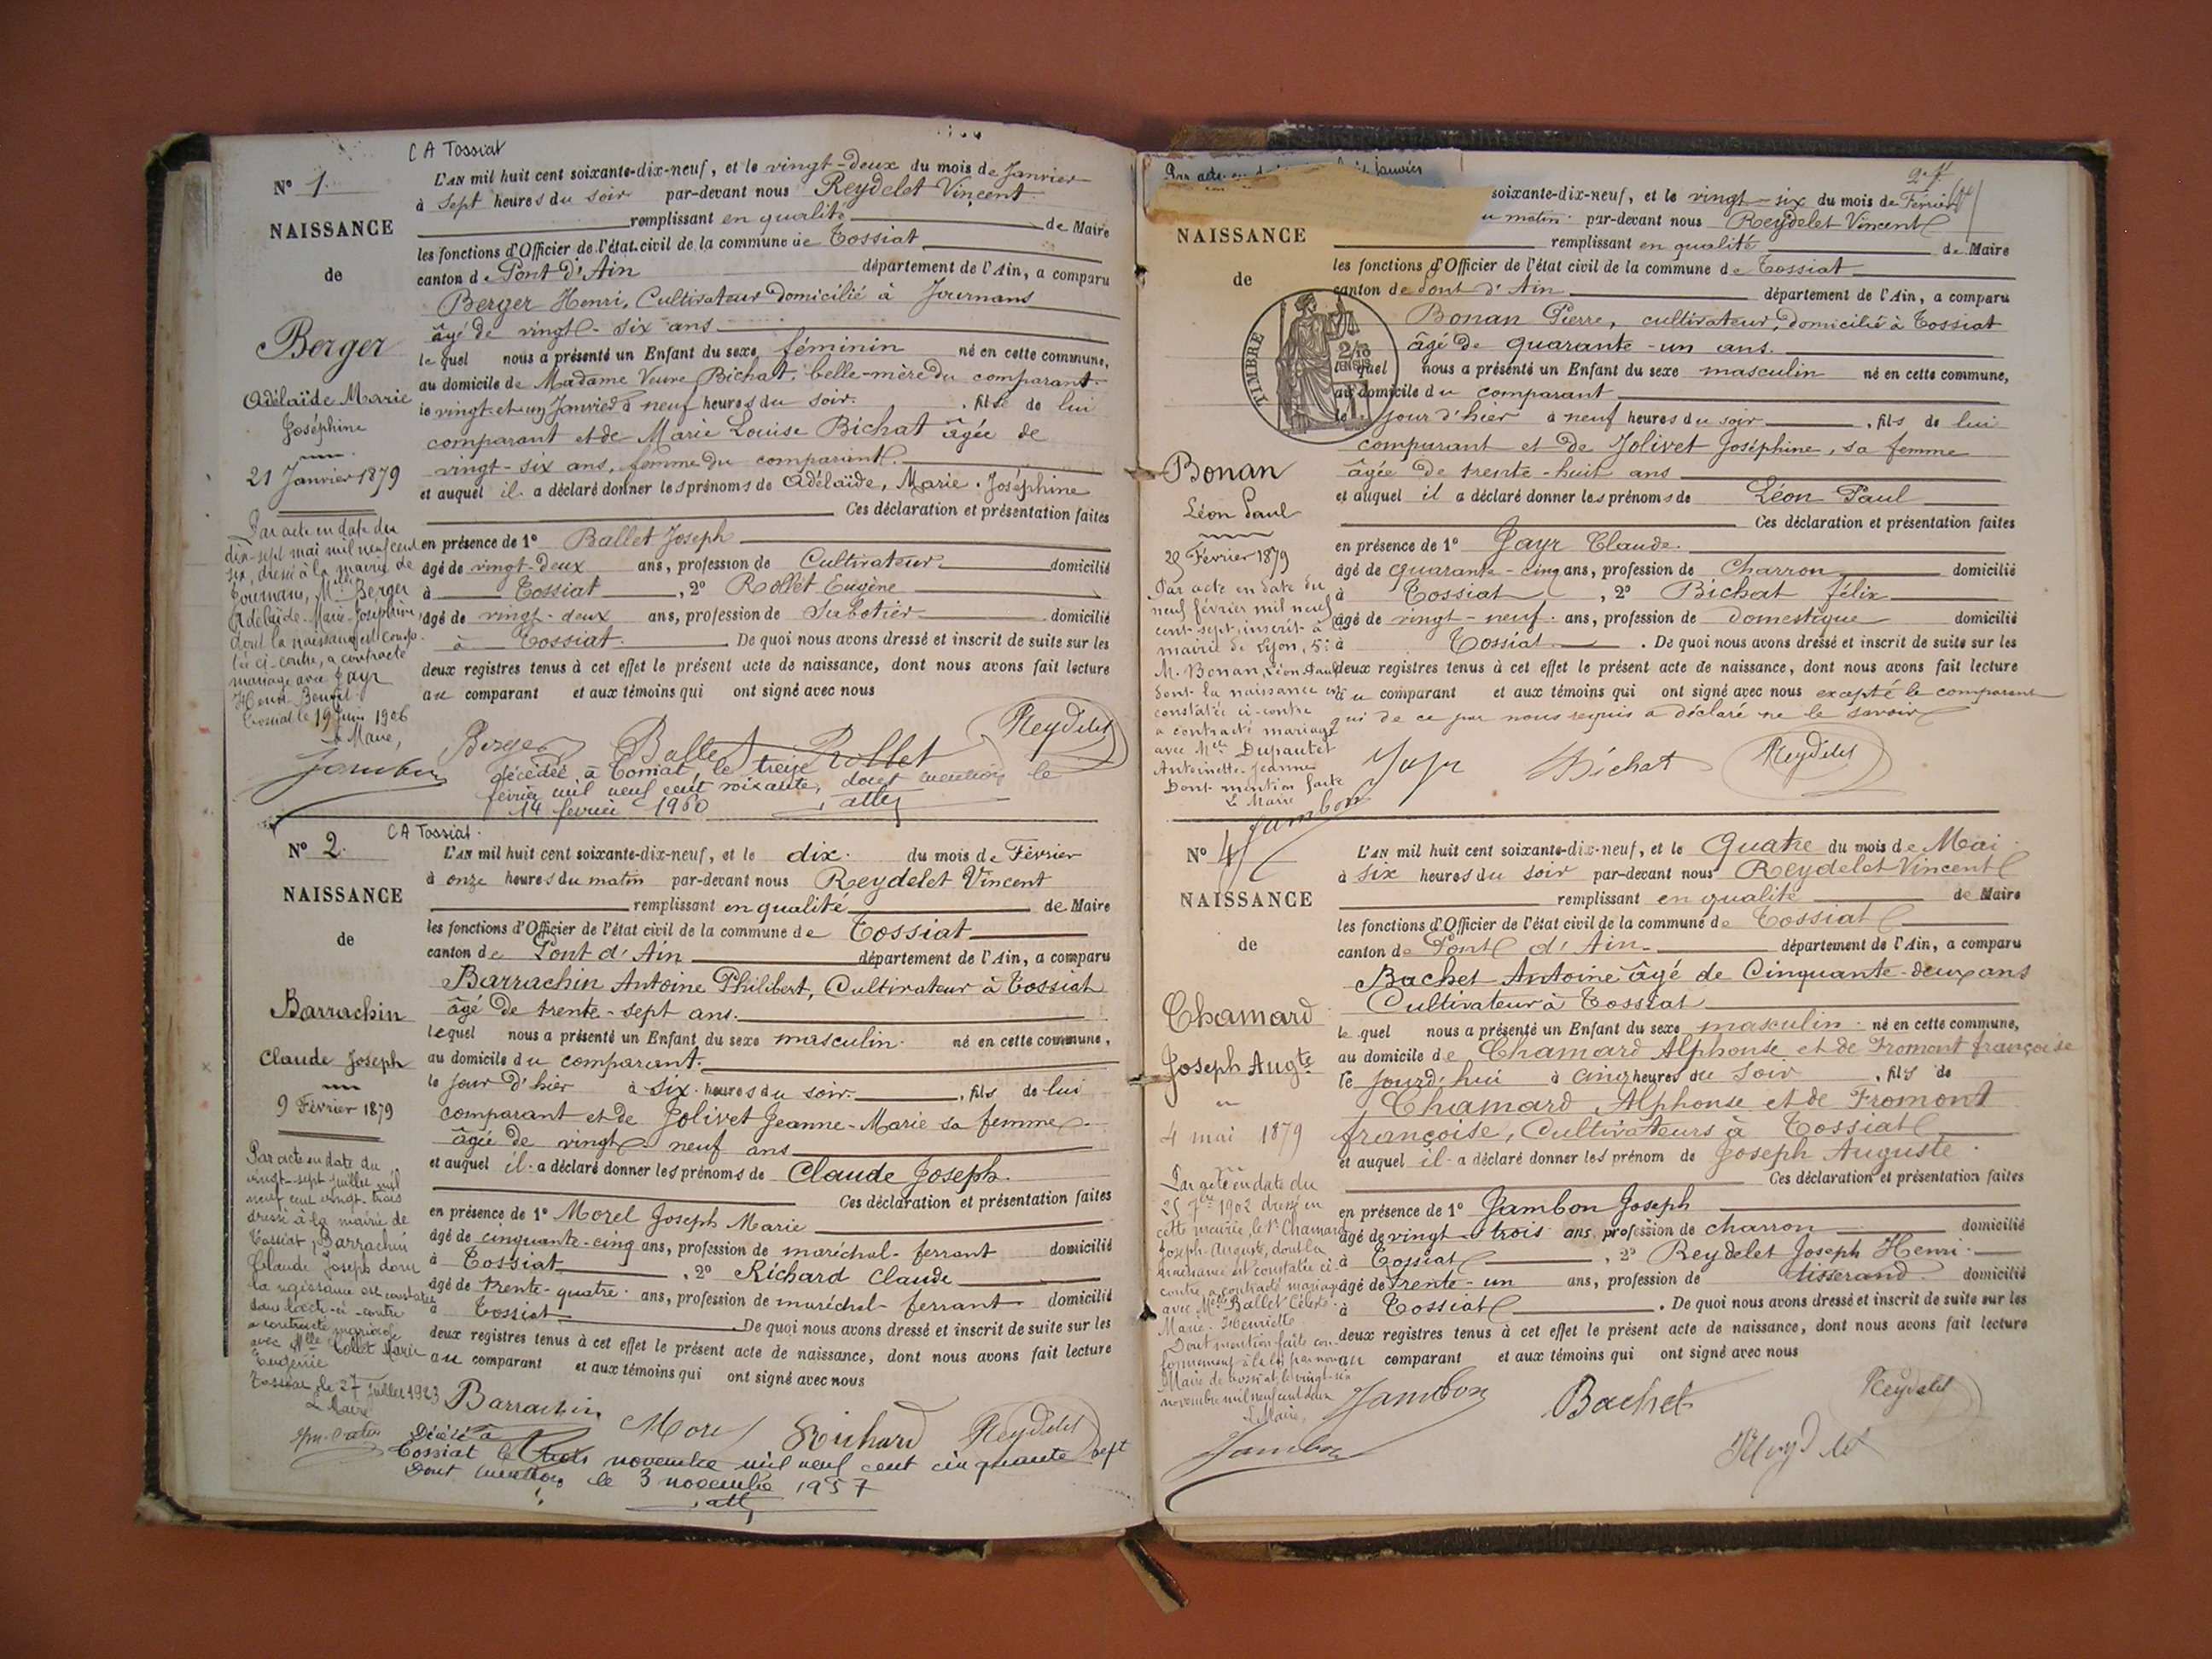 C A Tossiat
N° 1.
NAISSANCE
de
Berger
Adélaïde Marie
Joséphine
21 Janvier 1879
Par acte en date du
dix-sept mai mil neuf cent
six, dressé à la mairie de
Journans, Mlle Berger
Adélaïde-Marie-Joséphine,
dont la naissance est cons-
tée ci-contre, a contracté
mariage avec Jayr
Henri
Tossiat le 19 Juin 1906
Le Maire,
Jambon
L'AN mil huit cent soixante-dix-neuf, et le vingt-deux du mois de Janvier
à sept heures du soir par-devant nous Reydelet Vincent
remplissant en qualité de Maire
les fonctions d'Officier de l'état civil de la commune de Tossiat
canton de Pont d'Ain département de l'Ain, a comparu
Berger Henri, Cultivateur domicilié à Journans
âgé de vingt-six ans
lequel nous a présenté un Enfant du sexe féminin né en cette commune,
au domicile de Madame Veuve Bichat, belle-mère du comparant.
le vingt-et-un Janvier à neuf heures du soir. , fille de lui
comparant et de Marie Louise Bichat âgée de
vingt-six ans, femme du comparant.
et auquel il a déclaré donner les prénoms de Adélaïde, Marie, Joséphine
Ces déclaration et présentation faites
en présence de 1° Ballet Joseph
âgé de vingt-deux ans, profession de Cultivateur domicilié
à Tossiat , 2° Rollet Eugène
âgé de vingt-deux ans, profession de Sabotier domicilié
à Tossiat. De quoi nous avons dressé et inscrit de suite sur les
deux registres tenus à cet effet le présent acte de naissance, dont nous avons fait lecture
au comparant et aux témoins qui ont signé avec nous
Berger Ballet Rollet Reydelet
décédée à Tossiat le treize
février mil neuf cent soixante, dont mention le
14 février 1960
C A Tossiat.
N° 2.
NAISSANCE
de
Barrachin
Claude Joseph
9 Février 1879
Par acte en date du
vingt-sept juillet mil
neuf cent vingt-trois
dressé à la mairie de
Tossiat, Barrachin
Claude Joseph dont
la naissance est constatée
dans l'acte ci-contre
a contracté mariage
avec Mlle Collet Marie
Eugénie
Tossiat, le 27 juillet 1923
Le Maire
L'AN mil huit cent soixante-dix-neuf, et le dix. du mois de Février
à onze heures du matin par-devant nous Reydelet Vincent
remplissant en qualité de Maire
les fonctions d'Officier de l'état civil de la commune de Tossiat
canton de Pont d'Ain département de l'Ain, a comparu
Barrachin Antoine Philibert, Cultivateur à Tossiat
âgé de trente-sept ans.
lequel nous a présenté un Enfant du sexe masculin. né en cette commune,
au domicile du comparant.
le jour d'hier à six heures du soir. , fils de lui
comparant et de Jolivet Jeanne-Marie sa femme
âgée de vingt neuf ans
et auquel il a déclaré donner les prénoms de Claude Joseph.
Ces déclaration et présentation faites
en présence de 1° Morel Joseph Marie
âgé de cinquante-cinq ans, profession de maréchal-ferrant domicilié
à Tossiat , 2° Richard Claude
âgé de trente-quatre ans, profession de maréchal-ferrant domicilié
à Tossiat De quoi nous avons dressé et inscrit de suite sur les
deux registres tenus à cet effet le présent acte de naissance, dont nous avons fait lecture
au comparant et aux témoins qui ont signé avec nous
Barrachin Morel Richard Reydelet
Décédé à
Tossiat le novembre mil neuf cent cinquante sept
Dont mention le 3 novembre 1957
Par acte janvier
NAISSANCE
de
TIMBRE
Bonan
Léon Paul
25 Février 1879
Par acte en date du
neuf février mil neuf
cent-sept, inscrit à la
mairie de Lyon, 5e
M. Bonan, Léon Paul
dont la naissance est
constatée ci-contre
a contracté mariage
avec Mlle Dupautet
Antoinette-Jeanne
Dont mention faite
Le Maire
Jambon
soixante-dix-neuf, et le vingt-six du mois de Février
u matin par-devant nous Reydelet Vincent
remplissant en qualité de Maire
les fonctions d'Officier de l'état civil de la commune de Tossiat
canton de Pont d'Ain département de l'Ain, a comparu
Bonan Pierre, cultivateur, domicilié à Tossiat
âgé de quarante-un ans.
lequel nous a présenté un Enfant du sexe masculin né en cette commune,
au domicile du comparant
le jour d'hier à neuf heures du soir , fils de lui
comparant et de Jolivet Joséphine, sa femme
âgée de trente-huit ans
et auquel il a déclaré donner les prénoms de Léon Paul
Ces déclaration et présentation faites
en présence de 1° Jayr Claude.
âgé de quarante-cinq ans, profession de Charron domicilié
à Tossiat , 2° Bichat félix
âgé de vingt-neuf ans, profession de domestique domicilié
à Tossiat . De quoi nous avons dressé et inscrit de suite sur les
deux registres tenus à cet effet le présent acte de naissance, dont nous avons fait lecture
au comparant et aux témoins qui ont signé avec nous excepté le comparant
qui de ce par nous requis a déclaré ne le savoir
Jayr Bichat Reydelet
N° 4
NAISSANCE
de
Chamard
Joseph Augte
4 mai 1879
Par acte en date du
25 7bre 1902 dressé en
cette mairie, le Sr Chamard
Joseph-Auguste, dont la
naissance est constatée ci-
contre, a contracté mariage
avec Melle Ballet Céleste
Marie-Henriette
Dont mention faite con-
formément à la loi par nous
Maire de Tossiat, le vingt-six
novembre mil neuf cent deux
Le Maire,
Jambon
L'AN mil huit cent soixante-dix-neuf, et le Quatre du mois de Mai
à six heures du soir par-devant nous Reydelet Vincent
remplissant en qualité de Maire
les fonctions d'Officier de l'état civil de la commune de Tossiat
canton de Pont d'Ain département de l'Ain, a comparu
Bachet Antoine âgé de Cinquante-deux ans
Cultivateur à Tossiat
lequel nous a présenté un Enfant du sexe masculin né en cette commune,
au domicile de Chamard Alphonse et de Fromont françoise
le jourd'hui à cinq heures du soir , fils de
Chamard, Alphonse et de Fromont
françoise, Cultivateurs à Tossiat
et auquel il a déclaré donner les prénom de Joseph Auguste.
Ces déclaration et présentation faites
en présence de 1° Jambon Joseph
âgé de vingt-trois ans, profession de charron domicilié
à Tossiat , 2° Reydelet Joseph Henri.
âgé de trente-un ans, profession de tisserand domicilié
à Tossiat . De quoi nous avons dressé et inscrit de suite sur les
deux registres tenus à cet effet le présent acte de naissance, dont nous avons fait lecture
au comparant et aux témoins qui ont signé avec nous
Jambon Bachet Reydelet
Reydelet